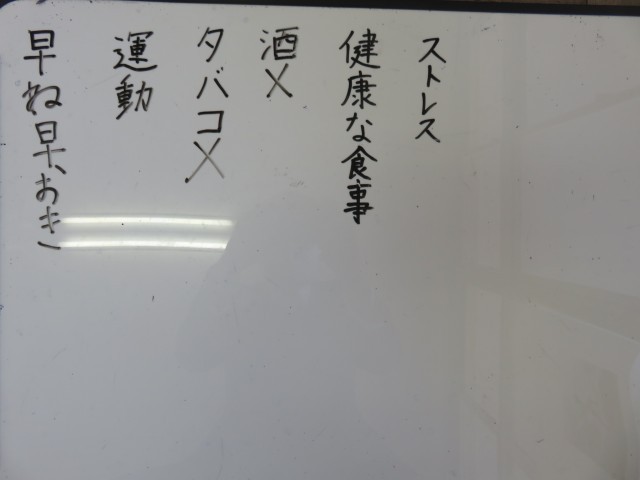 ストレス
健康な食事
酒✕
タバコ✕
運動
早ね早おき